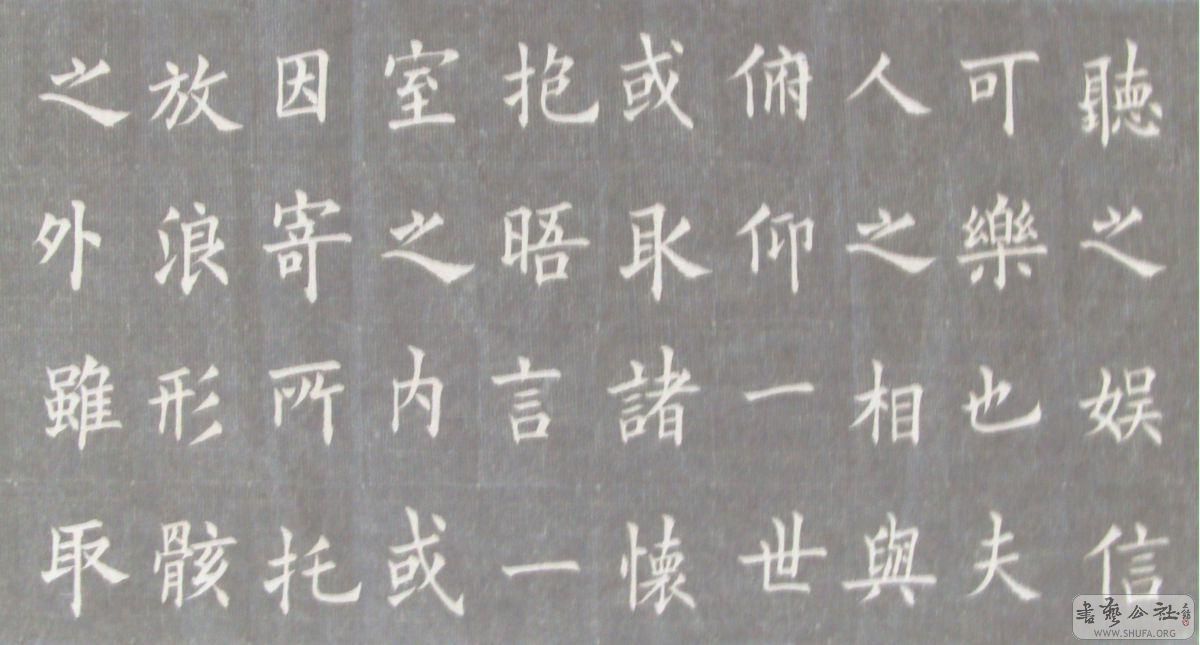 聽之娛信
可樂也夫
人之相與
俯仰一世
或取諸懷
抱晤言一
室之内或
因寄所托
放浪形骸
之外雖取
書藝公社
WWW.SHUFA.ORG